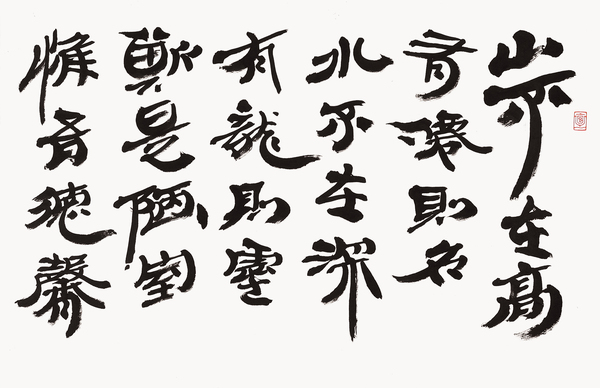 山不在高
有僊則名
水不在深
有龍則靈
斯是陋室
惟吾德馨